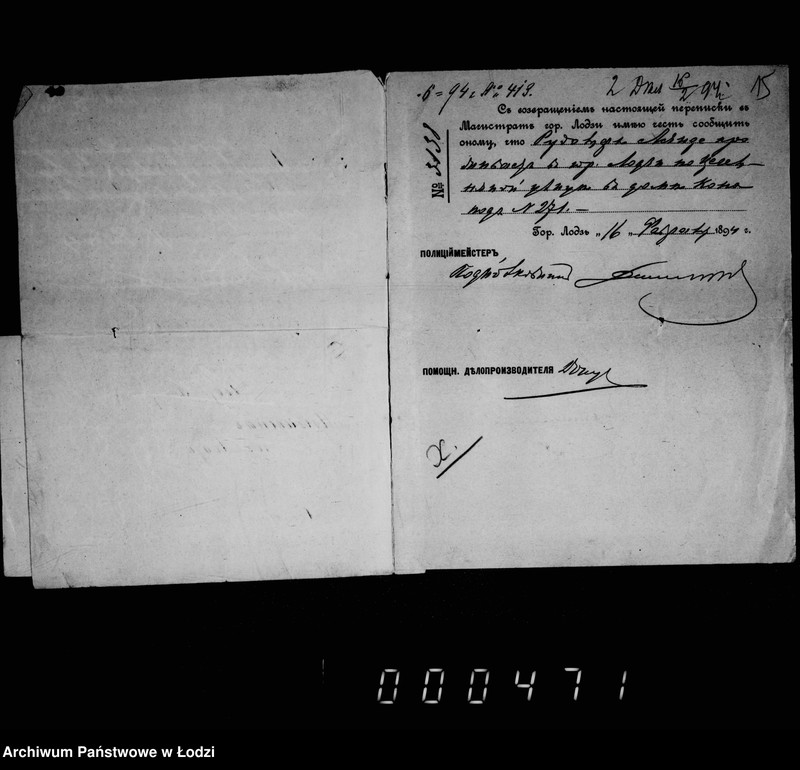 6 = 94 г. № 413.
2 Дѣл 16/2 94 г.
15
Съ возвращеніемъ настоящей переписки въ
Магистратъ гор. Лодзи имѣю честь сообщить
оному, что Рудольфъ про
живаетъ въ гор. Лодзи по
улицѣ въ домѣ
подъ № 271. —
№
Гор. Лодзь „16 „ Февраля 1894 г.
ПОЛИЦІЙМЕЙСТЕРЪ
Подполковникъ
ПОМОЩН. ДѢЛОПРОИЗВОДИТЕЛЯ
X.
000471
Archiwum Państwowe w Łodzi